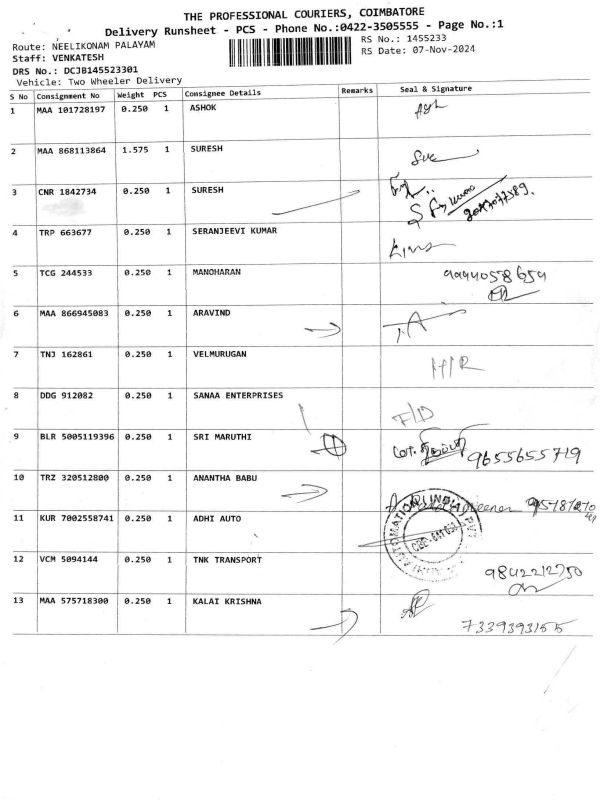 THE PROFESSIONAL COURIERS, COIMBATORE
Delivery Runsheet - PCS - Phone No.:0422-3505555 - Page No.:1
Route: NEELIKONAM PALAYAM
RS No.: 1455233
Staff: VENKATESH
RS Date: 07-Nov-2024
DRS No.: DCJB145523301
Vehicle: Two Wheeler Delivery
S No Consignment No Weight PCS Consignee Details Remarks Seal & Signature
1 MAA 101728197 0.250 1 ASHOK
2 MAA 868113864 1.575 1 SURESH
3 CNR 1842734 0.250 1 SURESH
4 TRP 663677 0.250 1 SERANJEEVI KUMAR
5 TCG 244533 0.250 1 MANOHARAN 9944058659
6 MAA 866945083 0.250 1 ARAVIND
7 TNJ 162861 0.250 1 VELMURUGAN
8 DDG 912082 0.250 1 SANAA ENTERPRISES F/D
9 BLR 5005119396 0.250 1 SRI MARUTHI 9655655719
10 TRZ 320512800 0.250 1 ANANTHA BABU
11 KUR 7002558741 0.250 1 ADHI AUTO
12 VCM 5094144 0.250 1 TNK TRANSPORT 9842212750
13 MAA 575718300 0.250 1 KALAI KRISHNA
7339393155